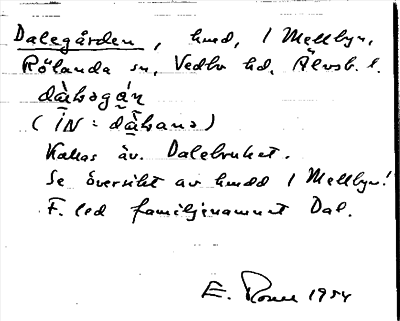 Dalegården, hmd, 1 Mellbyn,
Rölanda sn, Vedbo hd, Älvsb. l.
dàləgá̱n
(IN:
Kallas äv. Dalebruket.
Se översikt av hmdd 1 Mellbyn!
F. led familjenamnet Dal.
E. 1954